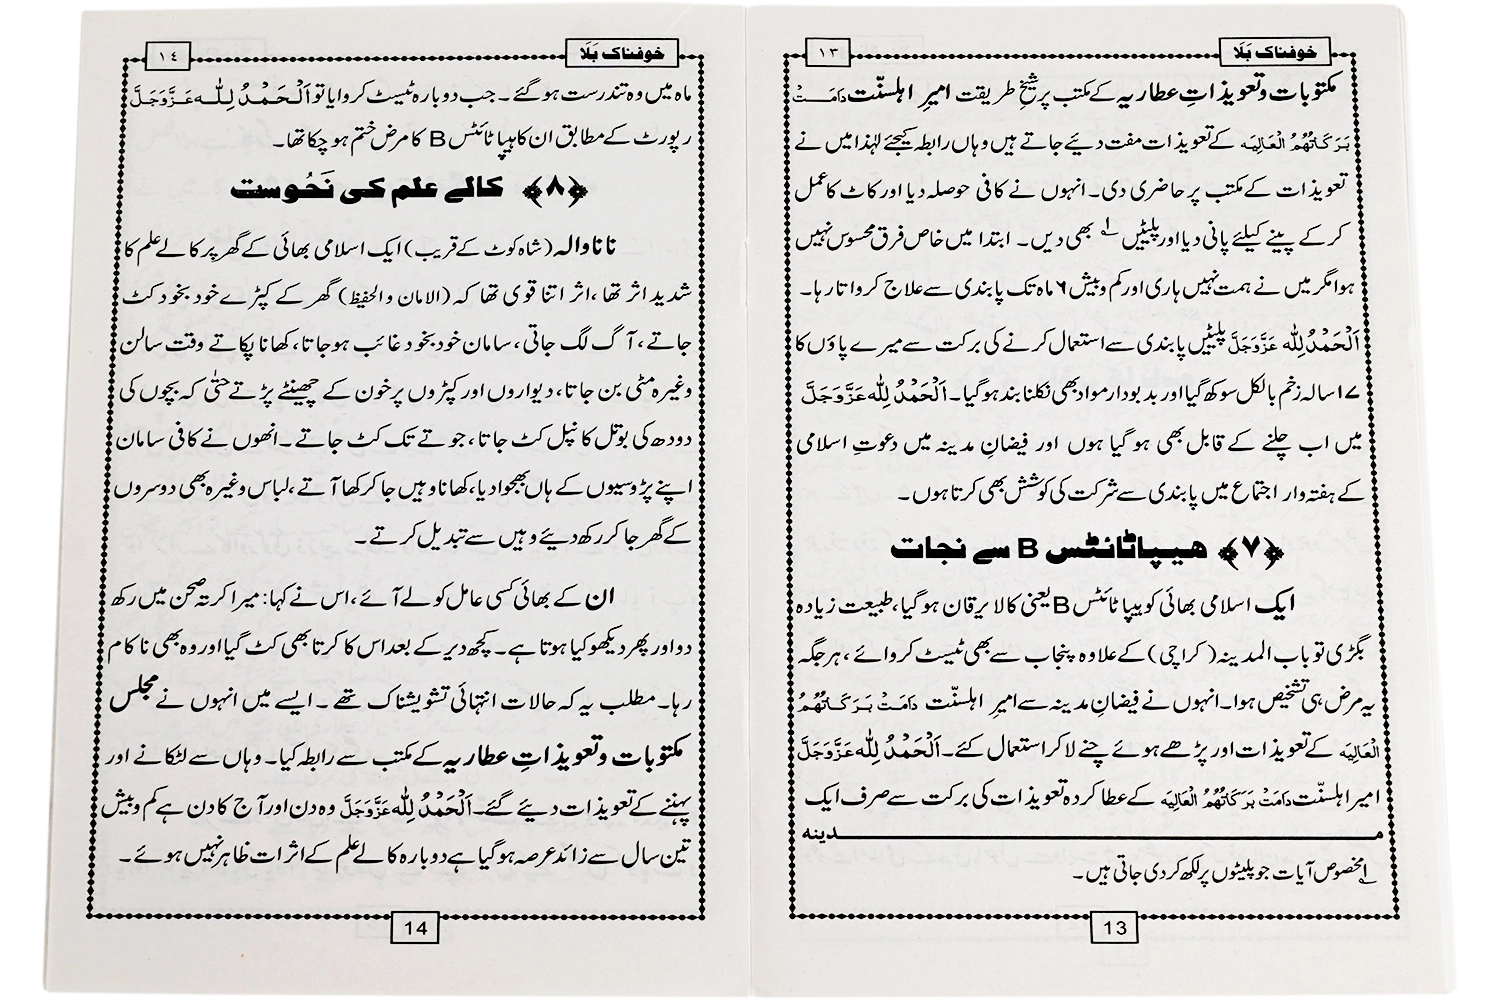 خوفناک بَلَا
١٣
مکتوبات وتعویذاتِ عطاریہ کے مکتب پر شیخِ طریقت امیرِ اہلسنّت دَامَتْ
بَرَکَاتُہُمُ الْعَالِیَہ کے تعویذات مفت دیئے جاتے ہیں وہاں رابطہ کیجئے لہٰذا میں نے
تعویذات کے مکتب پر حاضری دی۔ انہوں نے کافی حوصلہ دیا اور کاٹ کا عمل
کر کے پینے کیلئے پانی دیا اور پلیٹیں ۱؎ بھی دیں۔ ابتدا میں خاص فرق محسوس نہیں
ہوا مگر میں نے ہمت نہیں ہاری اور کم و بیش ۶ ماہ تک پابندی سے علاج کرواتا رہا۔
اَلْحَمْدُلِلّٰہ عَزَّوَجَلَّ پلیٹیں پابندی سے استعمال کرنے کی برکت سے میرے پاؤں کا
۱۷ سالہ زخم بالکل سوکھ گیا اور بدبودار مواد بھی نکلنا بند ہو گیا۔ اَلْحَمْدُ لِلّٰہ عَزَّوَجَلَّ
میں اب چلنے کے قابل بھی ہو گیا ہوں اور فیضانِ مدینہ میں دعوتِ اسلامی
کے ہفتہ وار اجتماع میں پابندی سے شرکت کی کوشش بھی کرتا ہوں۔
﴿۷﴾ ھیپاٹائٹس B سے نجات
ایک اسلامی بھائی کو ہیپاٹائٹس B یعنی کالا یرقان ہو گیا، طبیعت زیادہ
بگڑی تو باب المدینہ (کراچی) کے علاوہ پنجاب سے بھی ٹیسٹ کروائے، ہر جگہ
یہ مرض ہی تشخیص ہوا۔ انہوں نے فیضانِ مدینہ سے امیرِ اہلسنّت دَامَتْ بَرَکَاتُہُمُ
الْعَالِیَہ کے تعویذات اور پڑھے ہوئے چنے لا کر استعمال کئے۔ اَلْحَمْدُ لِلّٰہ عَزَّوَجَلَّ
امیر اہلسنّت دَامَتْ بَرَکَاتُہُمُ الْعَالِیَہ کے عطا کردہ تعویذات کی برکت سے صرف ایک
مـــــــــــــدینہ
۱؎ مخصوص آیات جو پلیٹوں پر لکھ کر دی جاتی ہیں۔
13
خوفناک بَلَا
١٤
ماہ میں وہ تندرست ہو گئے۔ جب دوبارہ ٹیسٹ کروایا تو اَلْحَمْدُ لِلّٰہ عَزَّوَجَلَّ
رپورٹ کے مطابق ان کا ہیپاٹائٹس B کا مرض ختم ہو چکا تھا۔
﴿۸﴾ کالے علم کی نَحُوست
نانا والہ (شاہ کوٹ کے قریب) ایک اسلامی بھائی کے گھر پر کالے علم کا
شدید اثر تھا، اثر اتنا قوی تھا کہ (الامان والحفیظ) گھر کے کپڑے خود بخود کٹ
جاتے، آگ لگ جاتی، سامان خود بخود غائب ہو جاتا، کھانا پکاتے وقت سالن
وغیرہ مٹی بن جاتا، دیواروں اور کپڑوں پر خون کے چھینٹے پڑتے حتّٰی کہ بچوں کی
دودھ کی بوتل کا نپل کٹ جاتا، جوتے تک کٹ جاتے۔ انھوں نے کافی سامان
اپنے پڑوسیوں کے ہاں بھجوا دیا، کھانا وہیں جا کر کھا آتے، لباس وغیرہ بھی دوسروں
کے گھر جا کر رکھ دیئے وہیں سے تبدیل کرتے۔
ان کے بھائی کسی عامل کو لے آئے، اس نے کہا: میرا کرتہ صحن میں رکھ
دو اور پھر دیکھو کیا ہوتا ہے۔ کچھ دیر کے بعد اس کا کرتا بھی کٹ گیا اور وہ بھی ناکام
رہا۔ مطلب یہ کہ حالات انتہائی تشویشناک تھے۔ ایسے میں انہوں نے مجلس
مکتوبات وتعویذاتِ عطاریہ کے مکتب سے رابطہ کیا۔ وہاں سے لٹکانے اور
پہننے کے تعویذات دیئے گئے۔ اَلْحَمْدُ لِلّٰہ عَزَّوَجَلَّ وہ دن اور آج کا دن ہے کم و بیش
تین سال سے زائد عرصہ ہو گیا ہے دوبارہ کالے علم کے اثرات ظاہر نہیں ہوئے۔
14